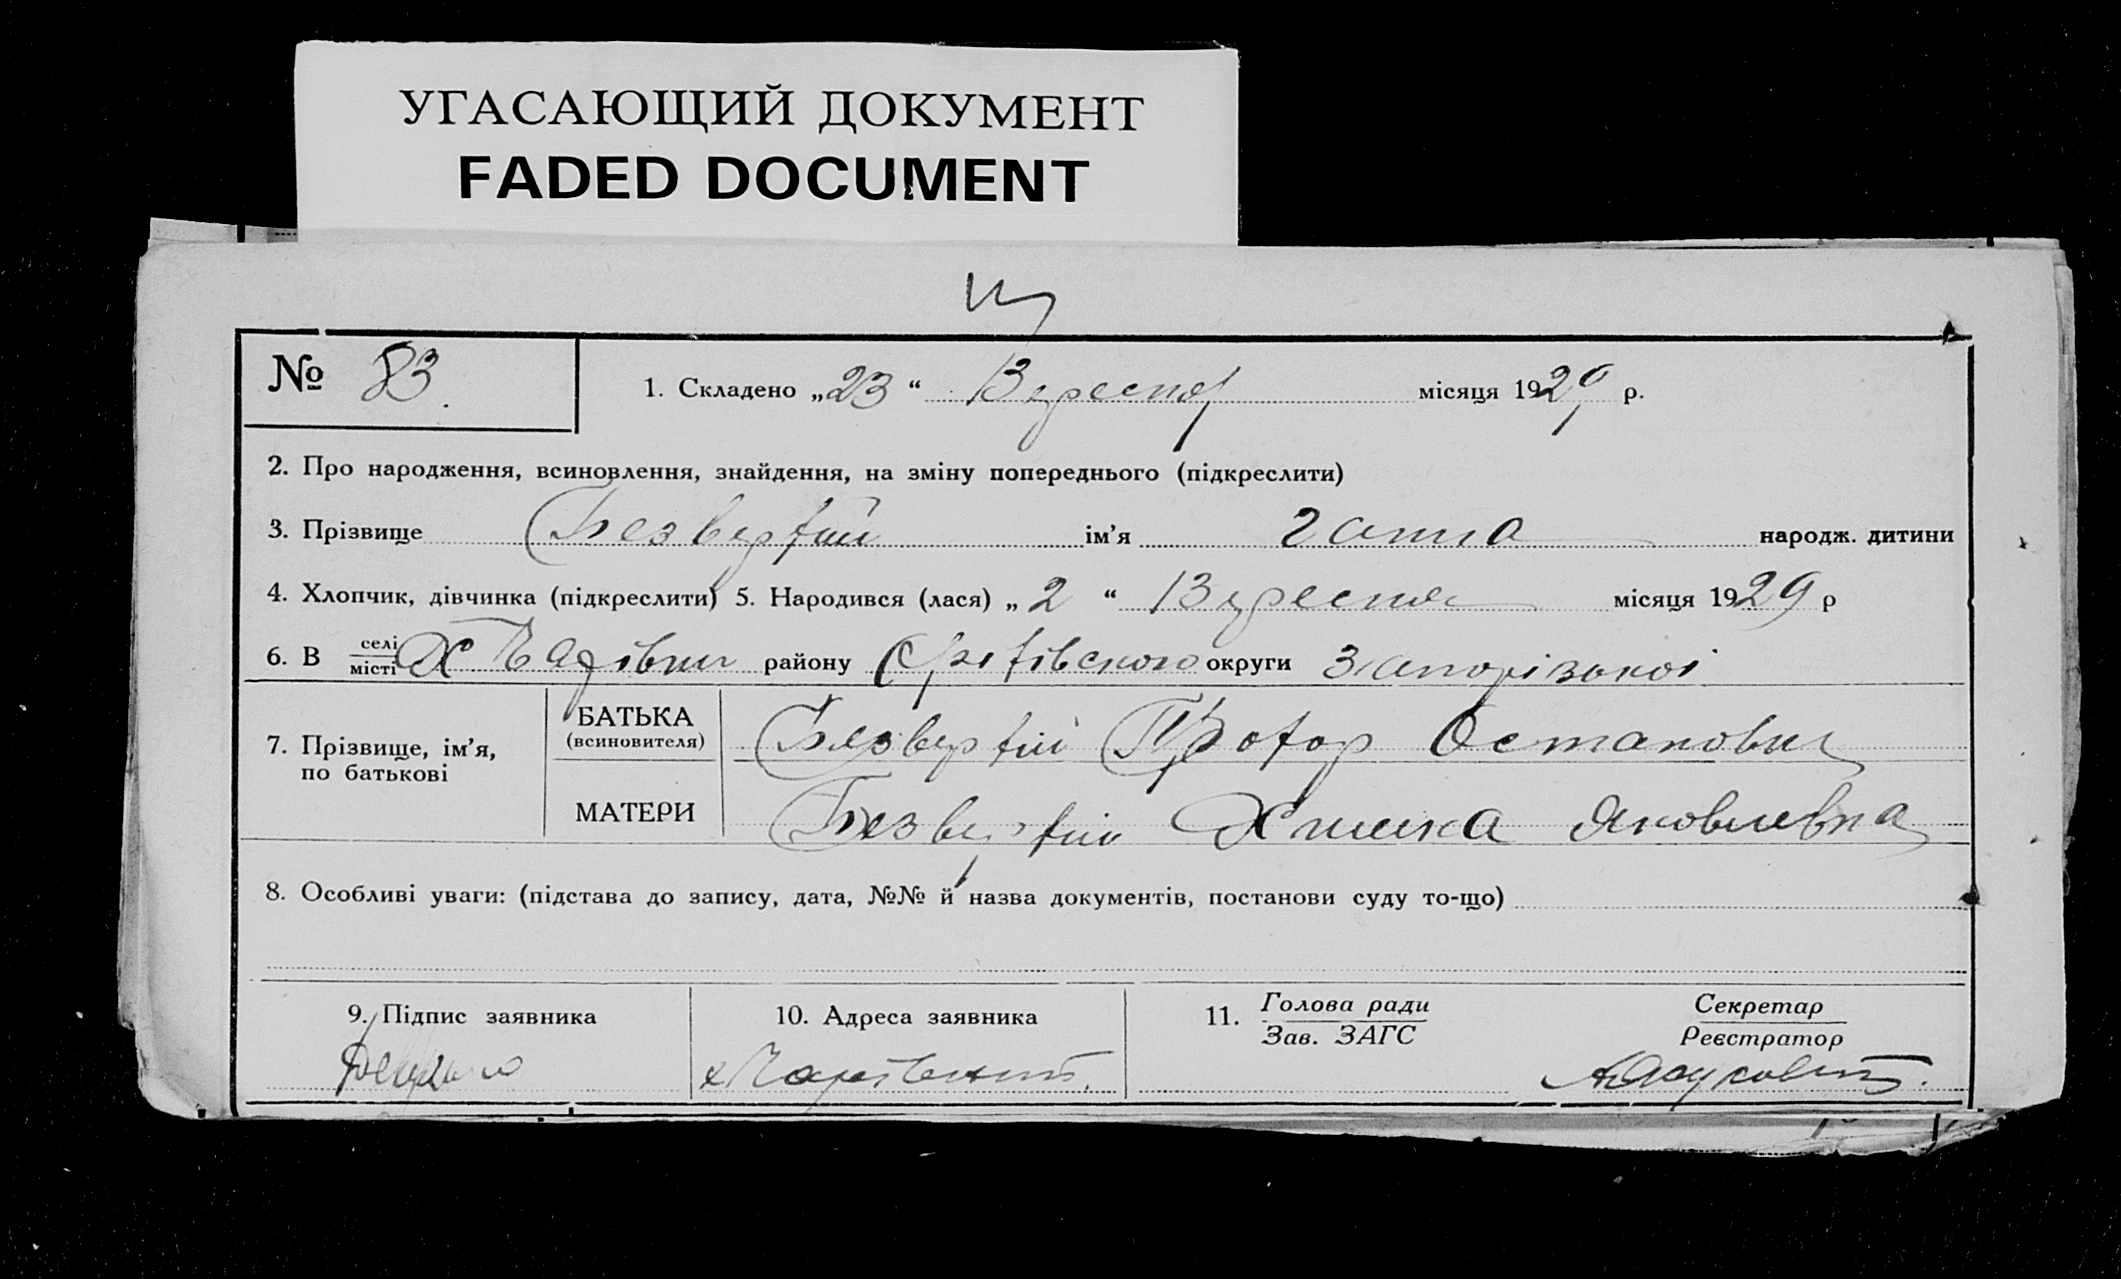 УГАСАЮЩИЙ ДОКУМЕНТ
FADED DOCUMENT
№ 83.
1. Складено „23“ Вересня місяця 1929 р.
2. Про народження, всиновлення, знайдення, на зміну попереднього (підкреслити)
3. Прізвище Безверхий ім'я Ганна народж. дитини
4. Хлопчик, дівчинка (підкреслити) 5. Народився (лася) „2“ Вересня місяця 1929 р
6. В селі/місті Х району округи Запорізької
7. Прізвище, ім'я, по батькові
БАТЬКА (всиновителя) Безверхий Остапович
МАТЕРИ Безверхий Яковлевна
8. Особливі уваги: (підстава до запису, дата, №№ й назва документів, постанови суду то-що)
9. Підпис заявника
10. Адреса заявника
11. Голова ради
Зав. ЗАГС
Секретар
Реєстратор